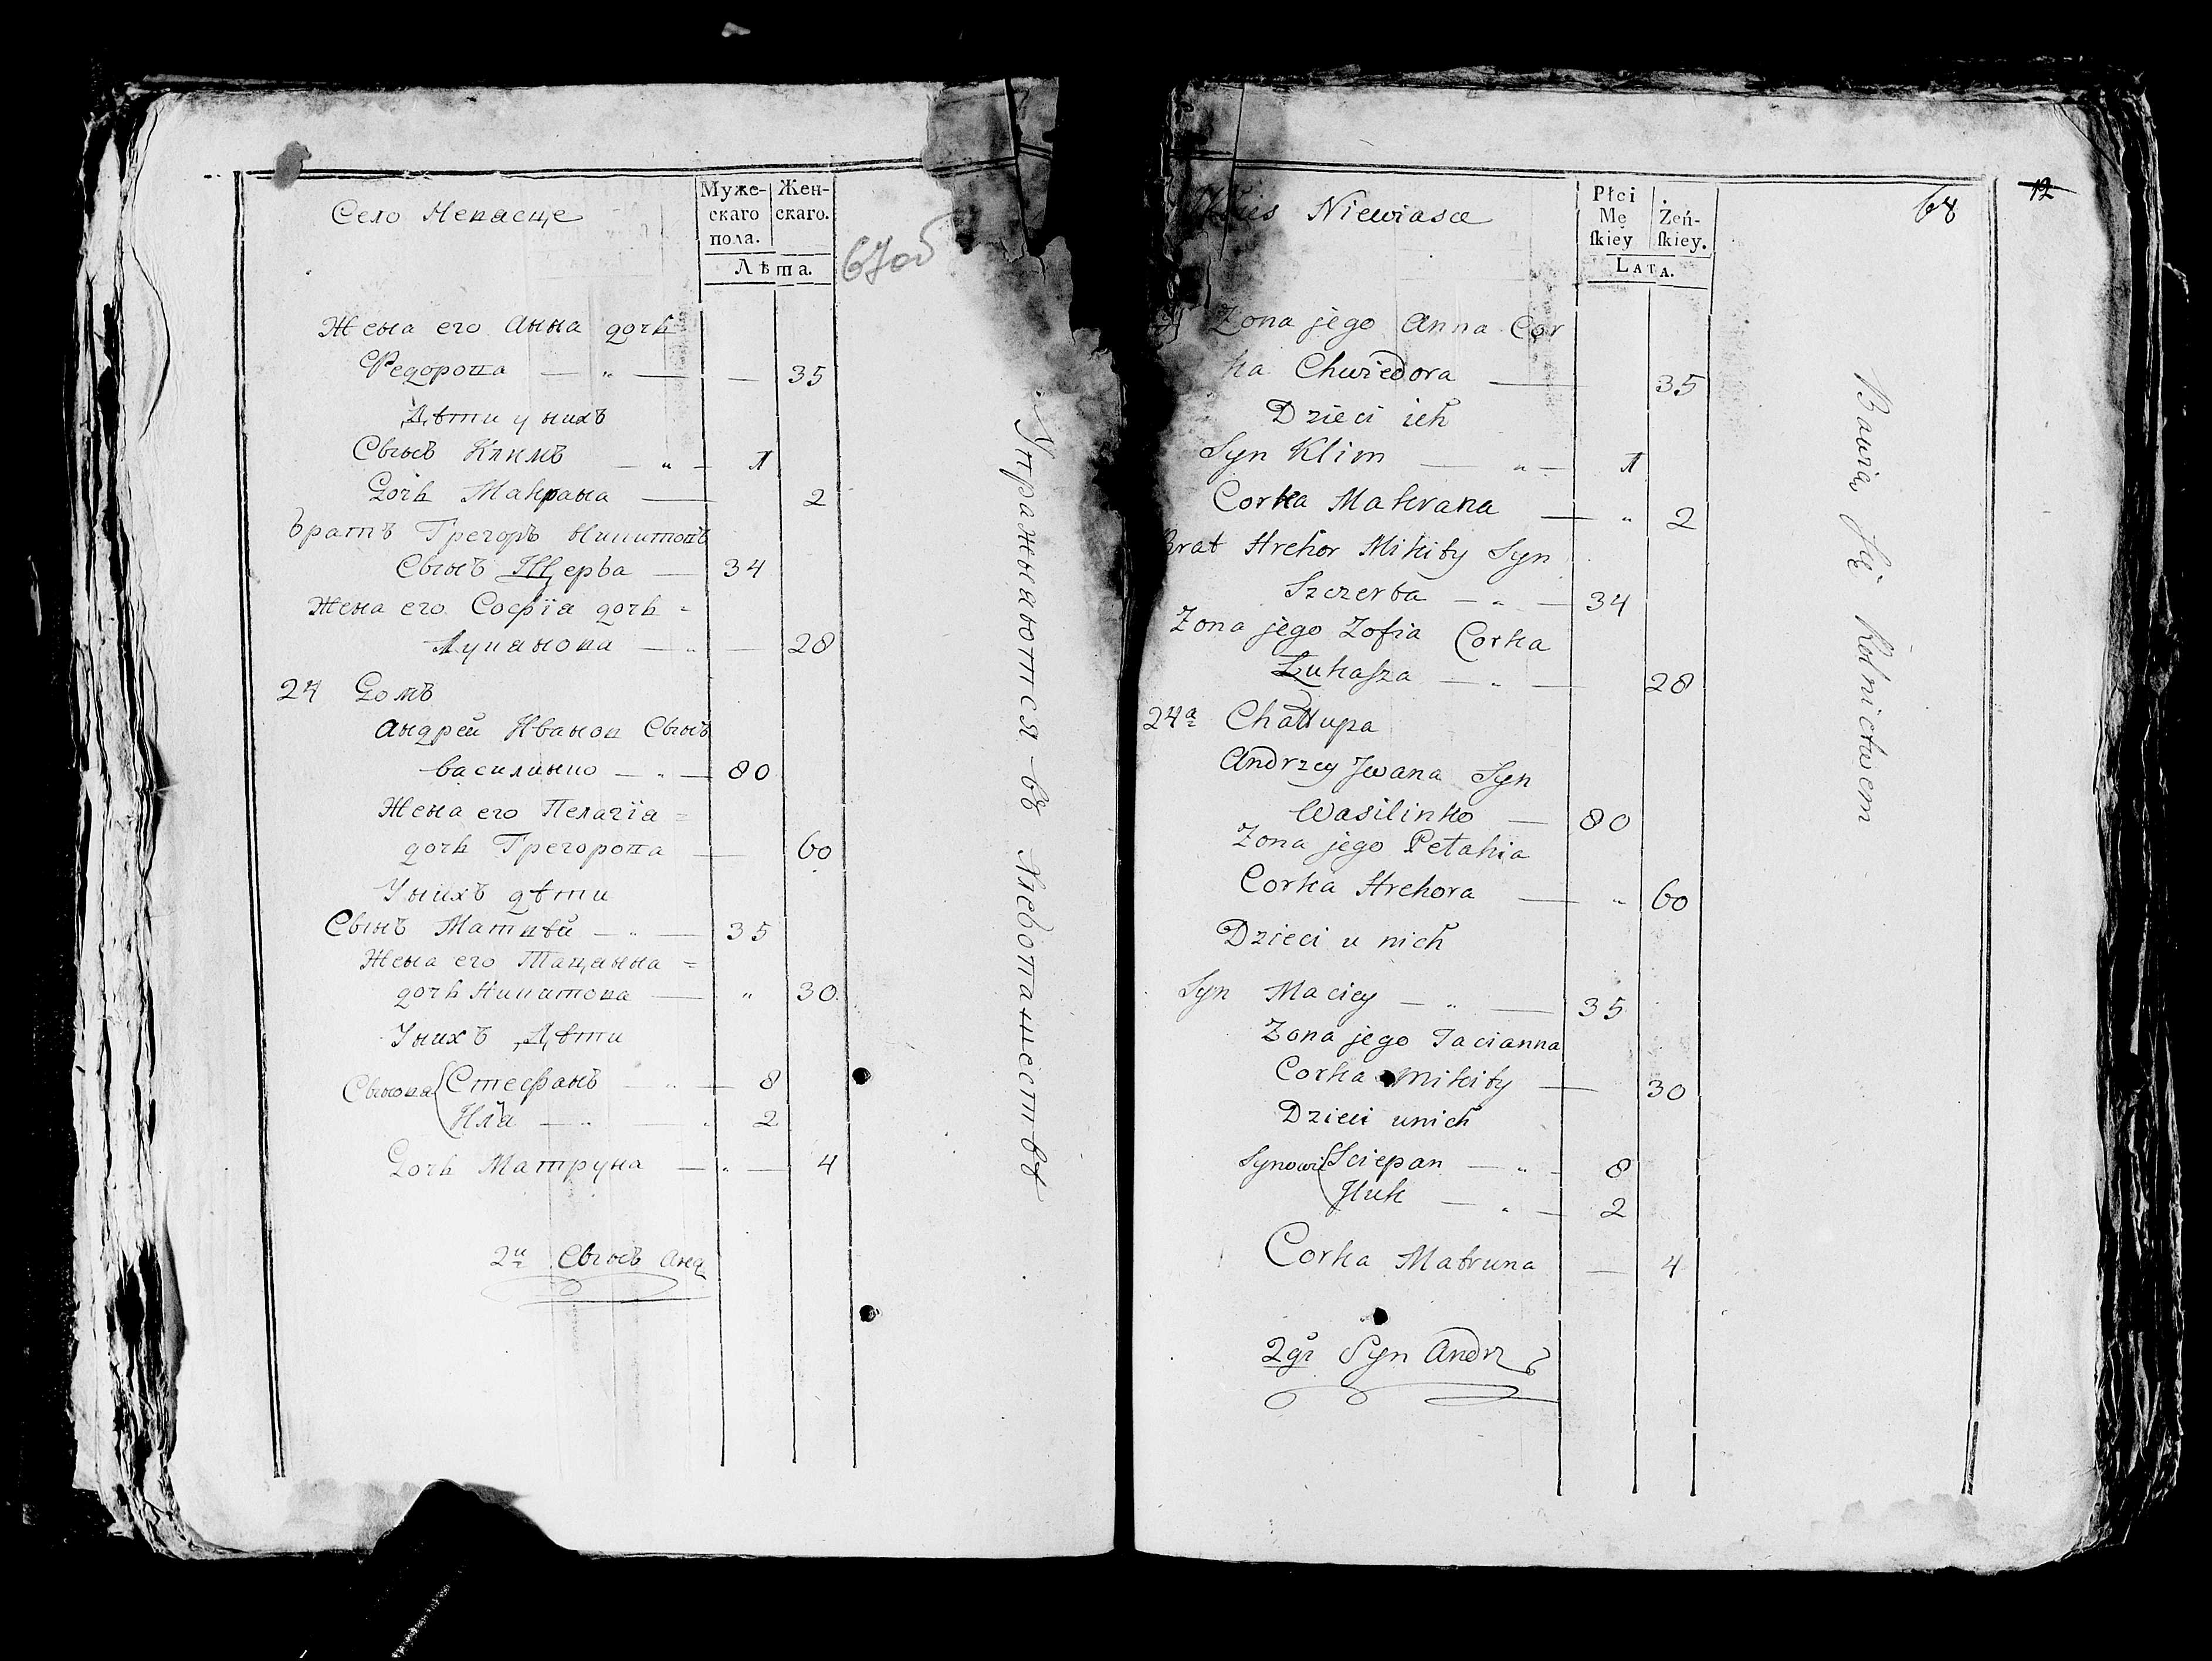 Село Невасце
Муже-
скаго
пола.
Жен-
скаго.
Лѣта.
67об
Жена его Анна дочь
Федорова — " — — 35
Дѣти у нихъ
Сынъ Климъ — " — 1
Дочь Макрана — 2
Братъ Грегоръ Никитовъ
Сынъ Щерба — 34
Жена его Софїа дочь =
Луканова — " — 28
24 Домъ
Андрей Иванов Сынъ
Василинко — " — 80
Жена его Пелагїа =
дочь Грегорова — 60
У нихъ дѣти
Сынъ Матвѣй — " — 35
Жена его Тацанна =
дочь Никитова — " 30
У нихъ Дѣти
Сынова Стефанъ — " — 8
Илїа — " — " 2
Дочь Матруна — " — 4
2й Сынъ Анд
Упражняются въ Хлебопашествѣ
Wies Niewiasce
Płci
Mę
ſkiey
Żeń-
ſkiey.
LATA.
68
12
Zona jego Anna Cor
ka Chwiedora — 35
Dzieci ich
Syn Klim — " — 1
Corka Makrana — " 2
Brat Hrehor Mikity Syn
Szczerba — " — 34
Zona jego Zofia Corka
Łukaſza — " — 28
24a Chałłupa
Andrzey Jwana Syn
Wasilinko — 80
Zona jego Petahia
Corka Hrehora — " 60
Dzieci u nich
Syn Maciey — " — 35
Zona jego Tacianna
Corka Mikity — 30
Dzieci unich
Synowi Sciepan — " — 8
Jluk — " — 2
Corka Matruna — 4
2gi Syn Andrz
Bawią ſię Rolnictwem